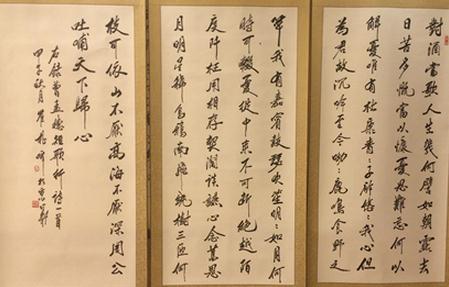 對酒當歌人生幾何譬如朝露去
日苦多慨當以慷憂思難忘何以
解憂唯有杜康青﹕子衿悠﹕我心但
為君故沉吟至今呦﹕鹿鳴食野之
苹我有嘉賓鼓瑟吹笙明﹕如月何
時可掇憂從中來不可斷絕越陌
度阡枉用相存契闊談讌心念舊恩
月明星稀烏鵲南飛繞樹三匝何
枝可依山不厭高海不厭深周公
吐哺天下歸心
右錄曹孟德短歌行詩一首
甲子秋月